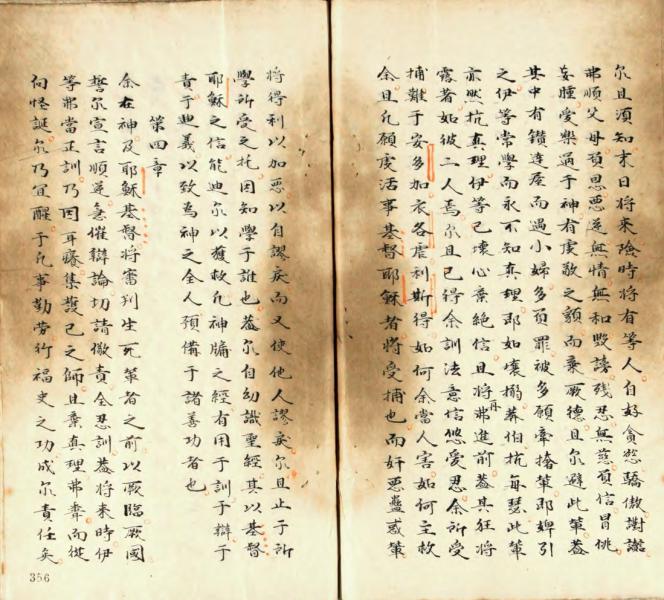 尔且須知末日将來險時将有等人自好貪慾驕傲
弗順父母頑思惡逆無情無和毀謗殘忍無慈負信冒
妄腫愛樂過于神有虔敬之貌而棄厥德且尔避此輩蓋
其中有鑽逹屋而過小婦多負罪被多願牽捲輩即婢引
之伊等常學而永不知真理即如壞搦莽伯抗每瑟此輩
亦然抗真理伊等已壞心棄絕信且将弗進前蓋其狂将
露著如彼二人焉尔且已得余訓法意信悠愛忍余所受
捕難于安多加衣各虐利斯得如何余當人害如何主救
余且凡願虔活事基督耶穌者将受捕也而奸惡蠱惑輩
将得利以加惡以自謬戾而又使他人謬戾尔且止于所
學所受之托因知學于誰也蓋尔自幼識聖經其以基督
耶穌之信能迪尔以獲救凡神牖之經有用于訓于辯于
責于迪義以致為神之全人預備于諸善功者也
第四章
余在神及耶穌基督将審判生死輩者之前以厥臨厥國
誓尔宣言順逆急催辯論切請儆責全忍訓蓋将來時伊
等弗當正訓乃因耳癢集護已之師且棄真理弗聾而從
向怪誕尔乃宜醒于凡事勤勞行福史之功成尔責任矣
356